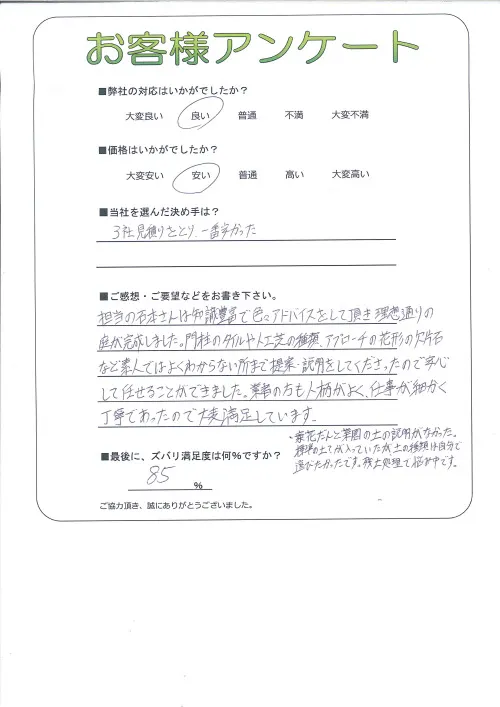 お客様アンケート
■弊社の対応はいかがでしたか？
大変良い 良い 普通 不満 大変不満
■価格はいかがでしたか？
大変安い 安い 普通 高い 大変高い
■当社を選んだ決め手は？
3社見積りをとり、一番安かった
■ご感想・ご要望などをお書き下さい。
担当の石本さんは知識豊富で色々アドバイスをして頂き理想通りの
庭が完成しました。門柱のタイルや人工芝の種類、アプローチの花形の欠片石
など素人ではよくわからない所まで提案・説明をしてくださったので安心
して任せることができました。業者の方も人柄がよく、仕事が細かく
丁寧であったので大変満足しています。
花だんと菜園の土の説明がなかった。
標準の土で入っていたが土の種類は自分で
選びたかったです。残土処理で悩み中です。
■最後に、ズバリ満足度は何％ですか？
85 %
ご協力頂き、誠にありがとうございました。